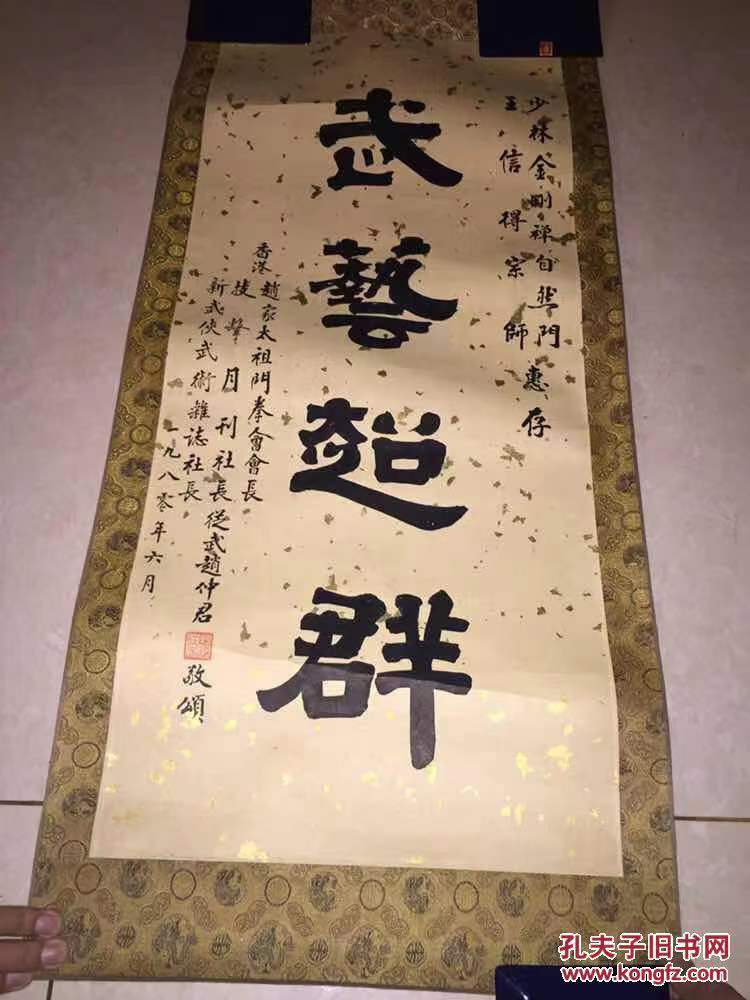 少林金剛禅自然門惠存
王信得宗師
武藝超群
香港趙家太祖門拳會會長
技擊月刊社長從武趙仲君敬頌
新武俠武術雜誌社長
一九八零年六月
孔夫子旧书网
www.kongfz.com